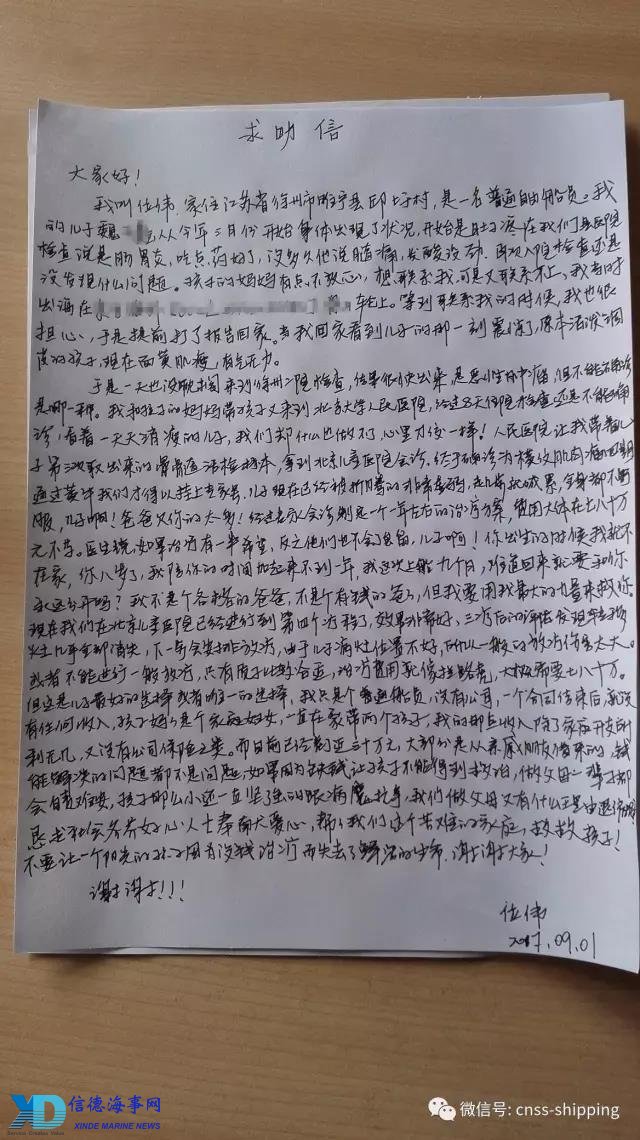 求助信
大家好!
我叫位伟,家住江苏省徐州市睢宁县邱上子村,是一名普通自由船员。我
的儿子魏 从今年三月份开始身体出现了状况,开始是肚子疼在我们县医院
检查说是肠胃炎,吃点药好了,没多久他说腿痛,发酸没劲,再次入院检查还是
没发现什么问题。孩子的妈妈有点不放心,想联系我,可是又联系不上,我当时
出海在 轮上。等到联系我的时候,我也很
担心,于是提前打了报告回家。当我回家看到儿子的那一刻震惊了,原本活泼调
皮的孩子,现在面黄肌瘦,有气无力。
于是一天也没耽搁来到徐州二院检查,结果很快出来,是恶性肿瘤,但不能确诊
是哪一种。我和孩子的妈妈带孩子又来到北京大学人民医院,经过8天住院检查还是不能确
诊,看着一天天消瘦的儿子,我们却什么也做不了,心里刀绞一样!人民医院让我带着儿
子第三次取出来的骨髓活检标本,拿到北京儿童医院会诊,终于确诊为横纹肌肉瘤
通过黄牛我们才得以挂上专家号,儿子现在已经被折腾的非常虚弱,
服,儿子啊!爸爸欠你的太多!经过专家会诊制定一个一年左右的治疗方案,费用大体在七八十万
元不等。医生说,如果治疗有一半希望,反之他们也不会乱留,儿子啊!你出生的时候我就不
在家,你八岁了,我陪你的时间加起来不到一年,我这次上船九个月,难道回来就要和你
永远分开吗?我不是个合格的爸爸,不是个有钱的爸爸,但我要用我最大的力量来救你。
现在我们在北京儿童医院已经进行到第四个疗程了,效果非常好,三疗后的评估发现转移
灶几乎全部消失,下一步会安排放疗,由于儿子病灶位置不好,所以一般的放疗伤害太大。
或者不能进行一般放疗,只有质子比较合适,治疗费用就像拦路虎,大概需要七八十万。
但这是儿子最好的选择或者唯一的选择,我只是个普通船员,没有公司,一个合同结束后,就没
有任何收入,孩子妈妈是个家庭妇女,一直在家带两个孩子,我的那点收入除了家庭开支所
剩无几,又没有公司保险之类。而目前已经花近三十万元,大部分是从亲戚朋友借来的,钱
能解决的问题都不是问题,如果因为缺钱让孩子不能得到救治,做父母一辈子都
会自责难安,孩子那么小还一直坚强的跟病魔抗争,我们做父母又有什么理由退缩
恳求社会各界好心人士奉献大爱心,帮帮我们这个苦难的家庭,救救孩子!
不要让一个阳光的孩子因为没钱治疗而失去了鲜活的生命,谢谢大家!
谢谢!!!
位伟
2017.09.01
XD
信德海事网
XINDE MARINE NEWS
Service Creates Value
微信号: cnss-shipping